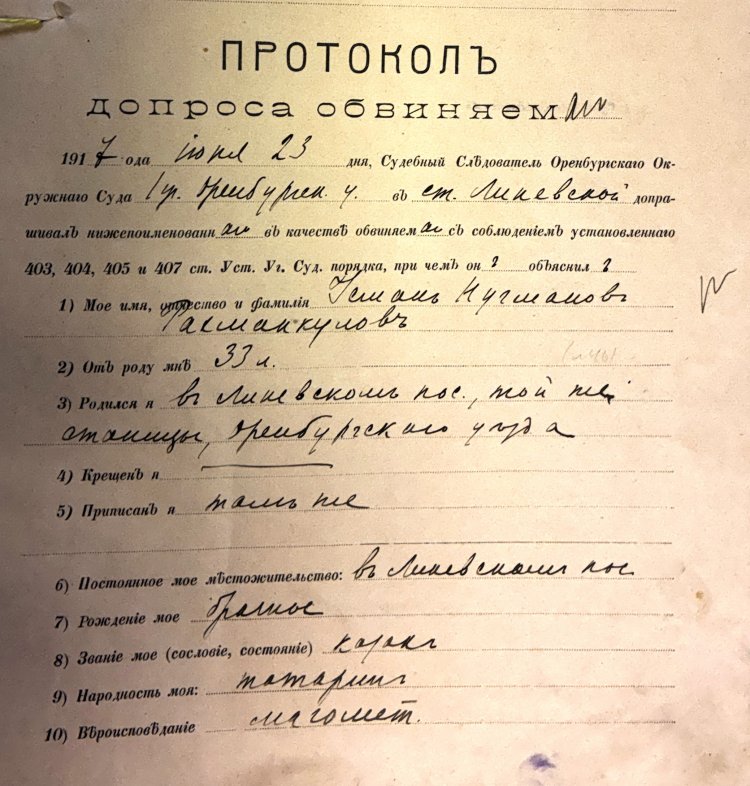 ПРОТОКОЛЪ
допроса обвиняемаго
1917 года іюня 23 дня, Судебный Слѣдователь Оренбургскаго Ок-
ружнаго Суда Оренбургск. у. въ ст. Линевской допра-
шивалъ нижепоименованн въ качествѣ обвиняем съ соблюденіемъ установленнаго
403, 404, 405 и 407 ст. Уст. Уг. Суд. порядка, при чемъ он объяснил
1) Мое имя, отчество и фамилія Усманъ Нугмановъ
Рахманкуловъ
2) Отъ роду мнѣ 33 л.
3) Родился я въ Линевскомъ пос., той же
станицы, Оренбургскаго уѣзда
4) Крещенъ я
5) Приписанъ я тамъ же
6) Постоянное мое мѣстожительство: въ Линевскомъ пос
7) Рожденіе мое брачное
8) Званіе мое (сословіе, состояніе) казакъ
9) Народность моя: татаринъ
10) Вѣроисповѣданіе магомет.